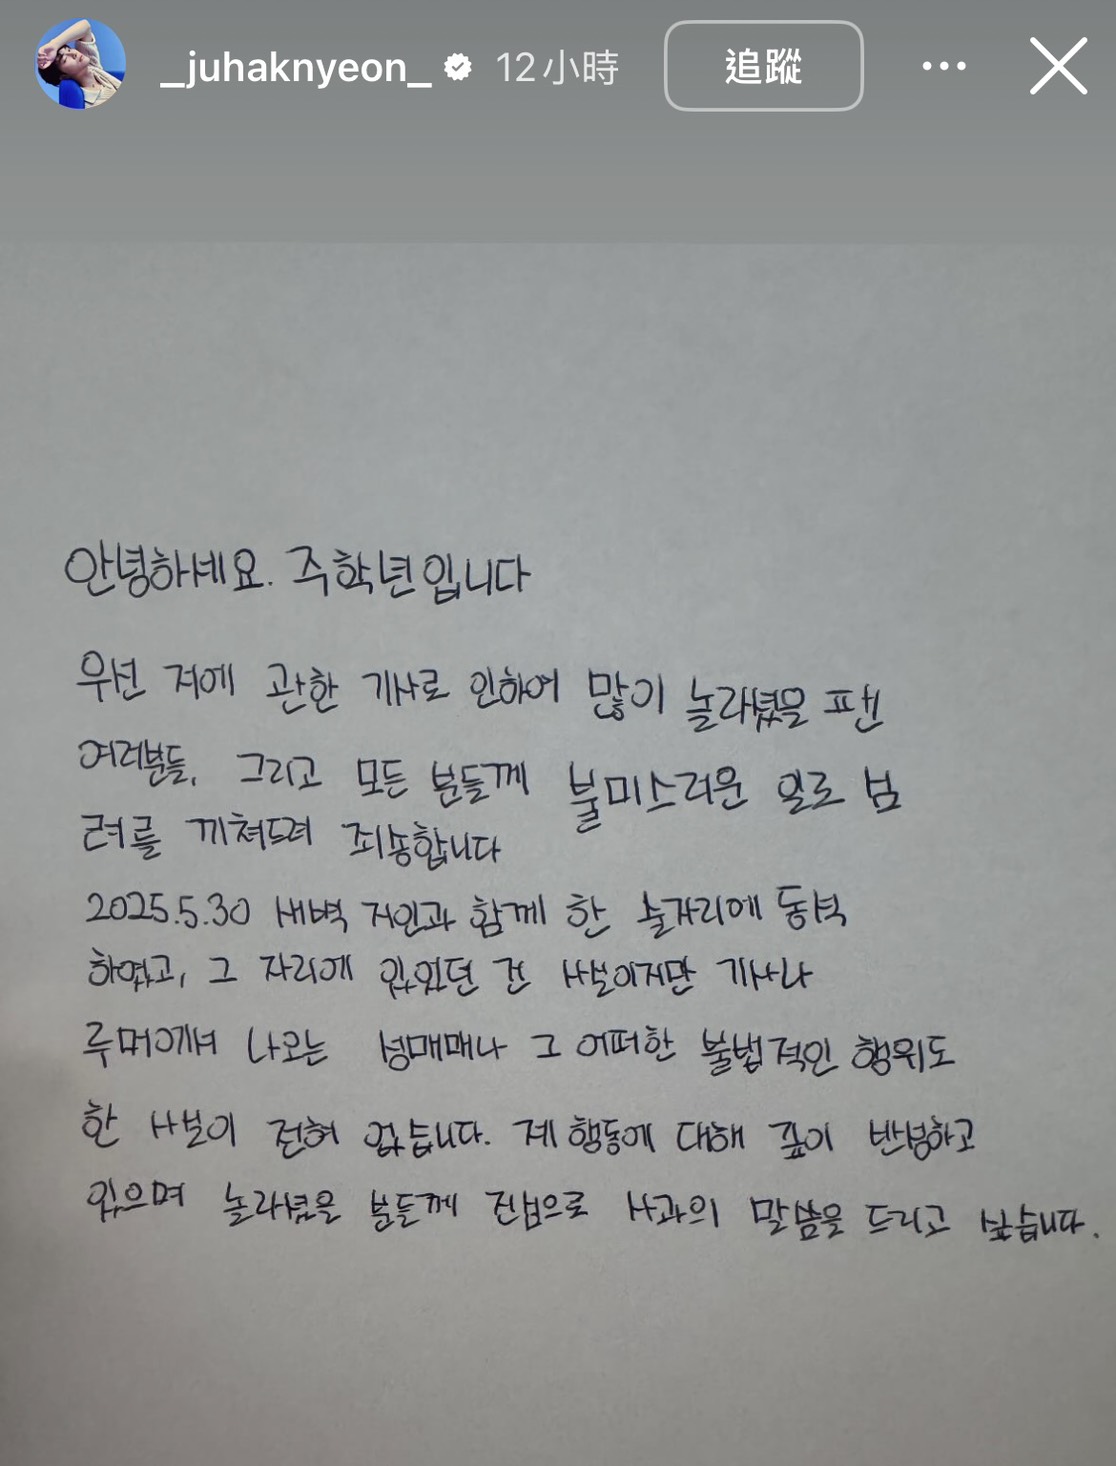 _juhaknyeon_ 12小時 追蹤
안녕하세요. 주학년입니다
우선 저에 관한 기사로 인하여 많이 놀라셨을 팬
여러분들, 그리고 모든 분들께 불미스러운 일로 심
려를 끼쳐드려 죄송합니다
2025.5.30 새벽 지인과 함께 한 술자리에 동석
하였고, 그 자리에 있었던 건 사실이지만 기사나
루머에서 나오는 성매매나 그 어떠한 불법적인 행위도
한 사실이 전혀 없습니다. 제 행동에 대해 깊이 반성하고
있으며 놀라셨을 분들께 진심으로 사과의 말씀을 드리고 싶습니다.